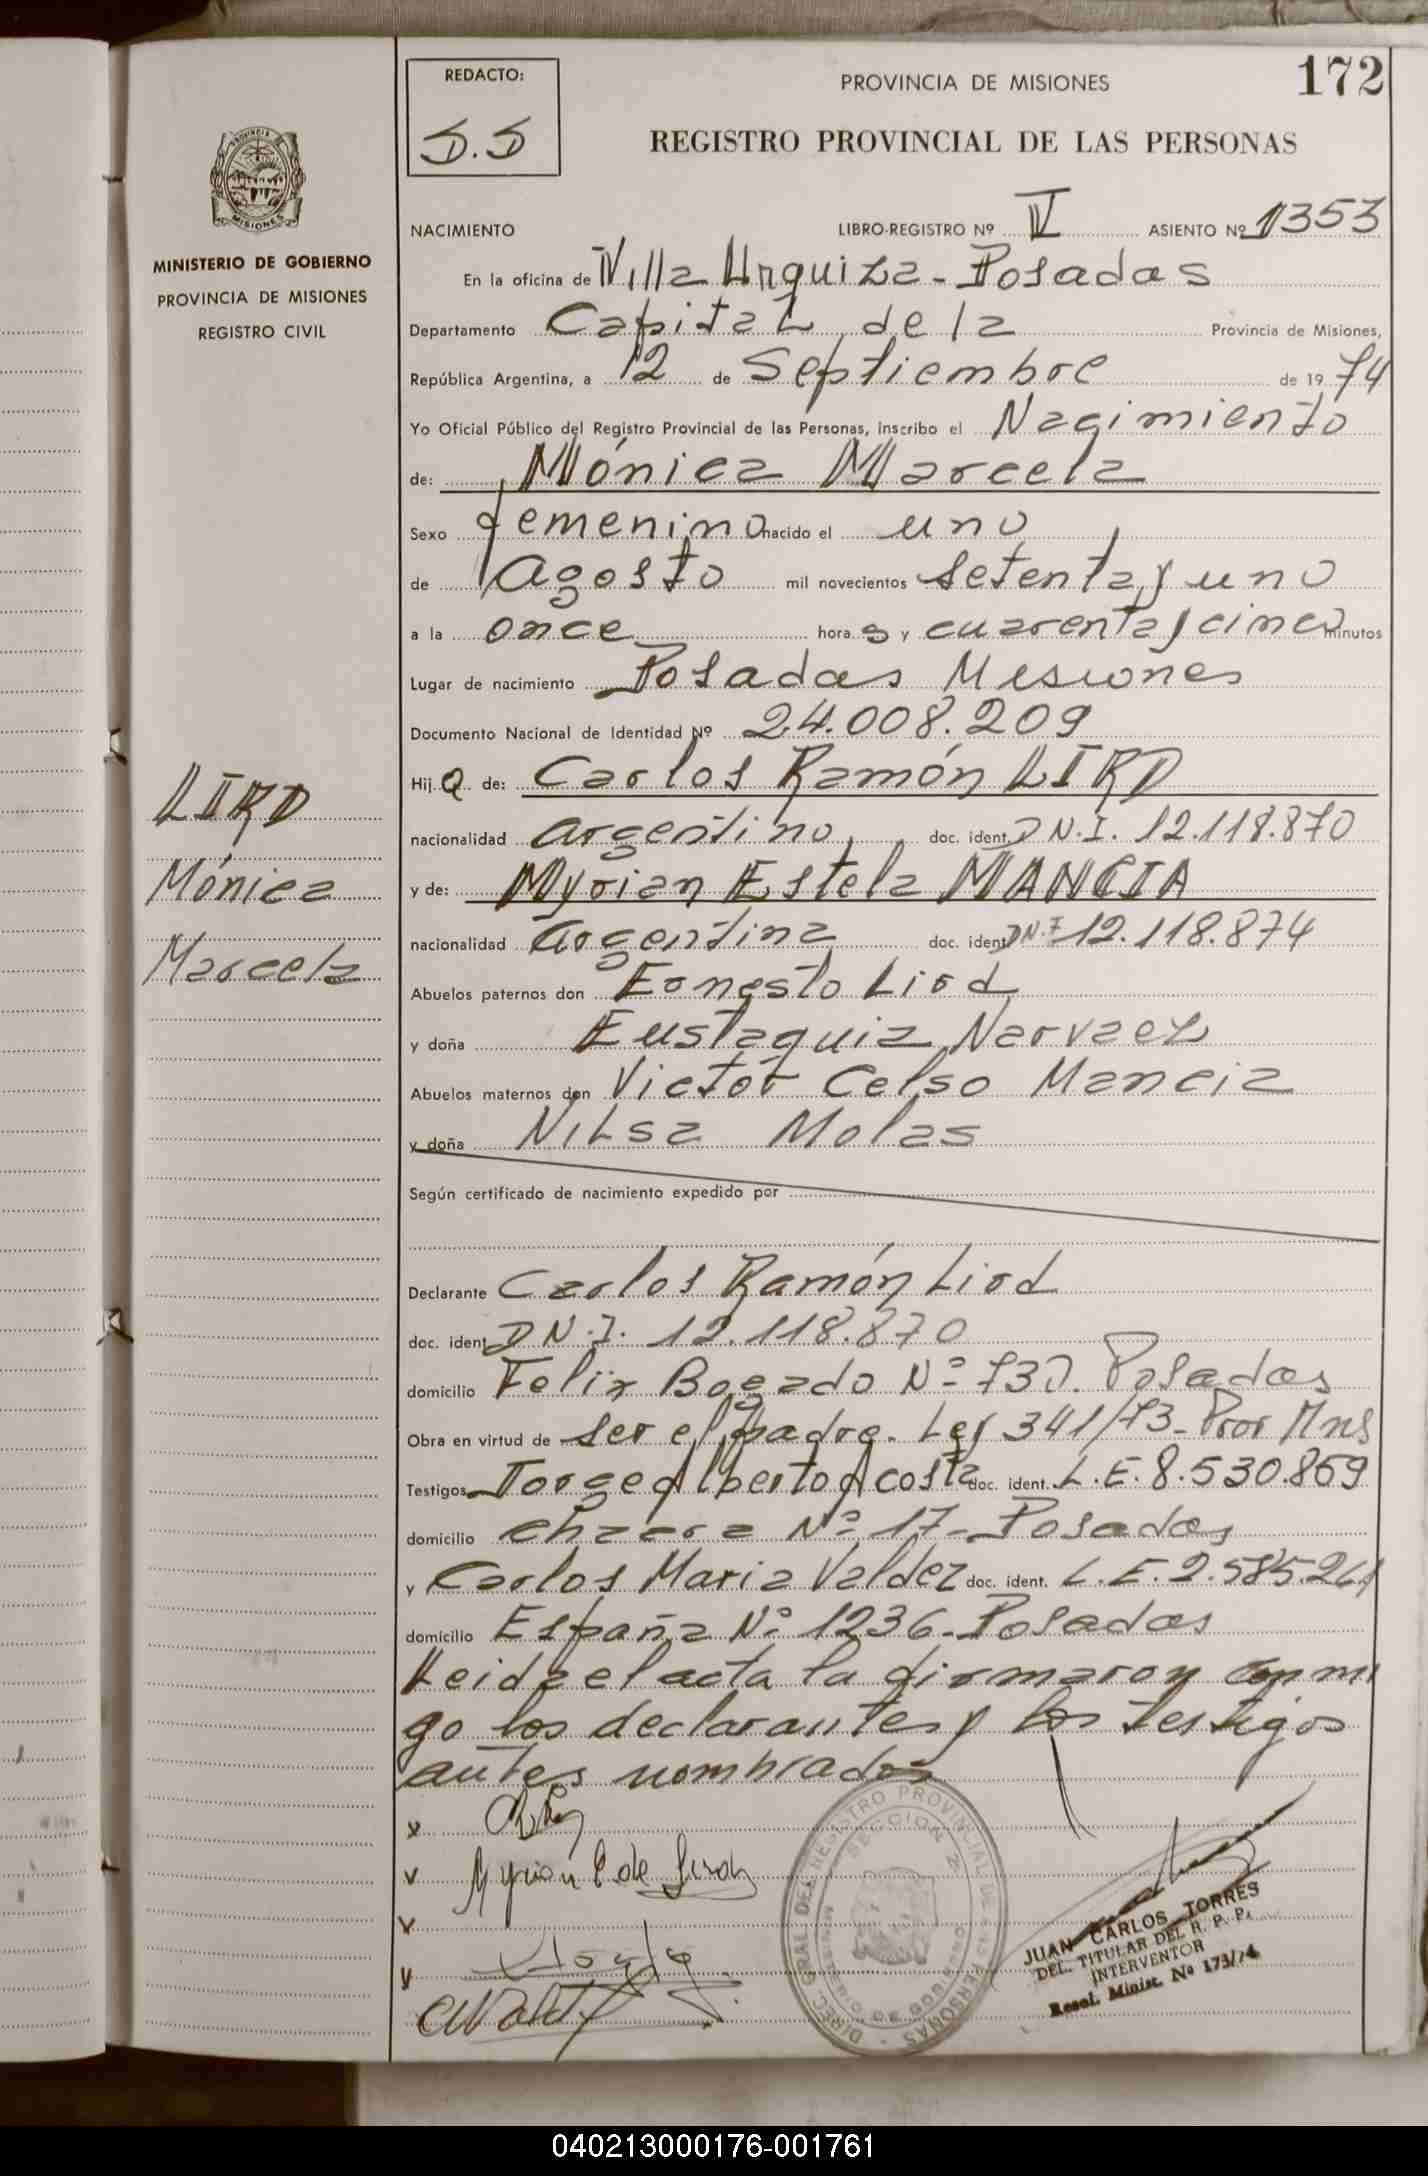 REDACTO:
D.D
PROVINCIA DE MISIONES
172
REGISTRO PROVINCIAL DE LAS PERSONAS
PROVINCIA DE MISIONES
MINISTERIO DE GOBIERNO
PROVINCIA DE MISIONES
REGISTRO CIVIL
NACIMIENTO LIBRO-REGISTRO Nº IV ASIENTO Nº 1353
En la oficina de Villa Urquiza - Posadas
Departamento Capital de la Provincia de Misiones,
República Argentina, a 12 de Septiembre de 1974
Yo Oficial Público del Registro Provincial de las Personas, inscribo el Nacimiento
de: Mónica Marcela
Sexo femenino nacido el uno
de Agosto mil novecientos setenta y uno
a la once hora s y cuarenta y cinco minutos
Lugar de nacimiento Posadas Misiones
Documento Nacional de Identidad Nº 24.008.209
Hij a de: Carlos Ramón LIRD
nacionalidad argentino doc. ident. D N.I. 12.118.870
y de: Myrian Estela MANCIA
nacionalidad argentina doc. ident. DN.I 12.118.874
Abuelos paternos don Ernesto Lird
y doña Eustaquia Narvaez
Abuelos maternos don Victor Celso Mancia
y doña Nilsa Molas
Según certificado de nacimiento expedido por
Declarante Carlos Ramón Lird
doc. ident. D N.I. 12.118.870
domicilio Felix Bogado Nº 730. Posadas
Obra en virtud de ser el padre. Ley 341/73 - Pror Mns
Testigos Jorge Alberto Acosta doc. ident. L.E. 8.530.859
domicilio Chacra Nº 17 - Posadas
y Carlos Maria Valdez doc. ident. L.E. 2.585.261
domicilio España Nº 1236 - Posadas
Leida el acta la firmaron conmi
go los declarantes y los testigos
antes nombrados
LIRD
Mónica
Marcela
Myrian E de Lird
DIREC. GRAL. DEL REGISTRO PROVINCIAL DE LAS PERSONAS
SECCION
JUAN CARLOS TORRES
DEL. TITULAR DEL R. P. P.
INTERVENTOR
Resol. Minist. Nº 173/74
040213000176-001761